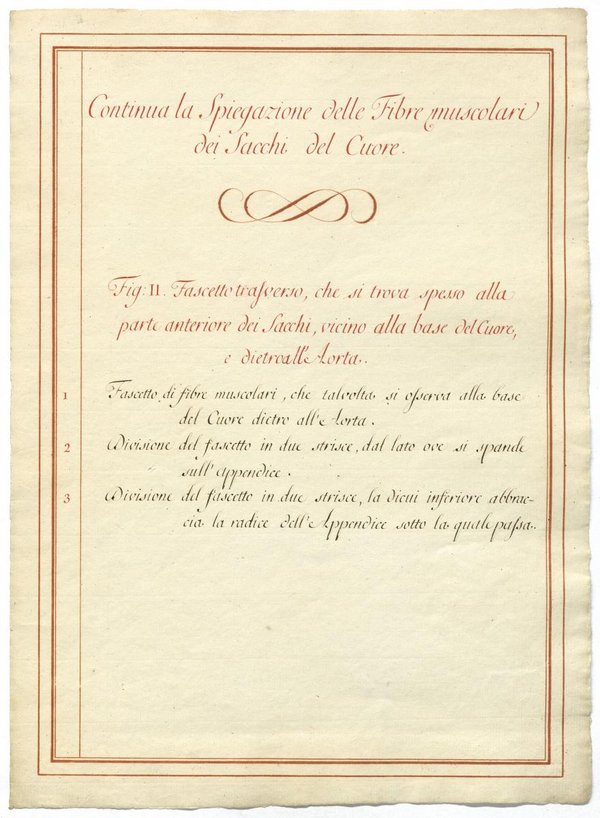 Continua la Spiegazione delle Fibre muscolari
dei Sacchi del Cuore.
Fig: II. Fascetto trasverso, che si trova spesso alla
parte anteriore dei Sacchi, vicino alla base del Cuore,
e dietro all'Aorta.
1 Fascetto di fibre muscolari, che talvolta si osserva alla base
del Cuore dietro all'Aorta.
2 Divisione del fascetto in due strisce, dal lato ove si spande
sull'appendice.
3 Divisione del fascetto in due strisce, la dicui inferiore abbrac-
cia la radice dell'Appendice sotto la quale passa.